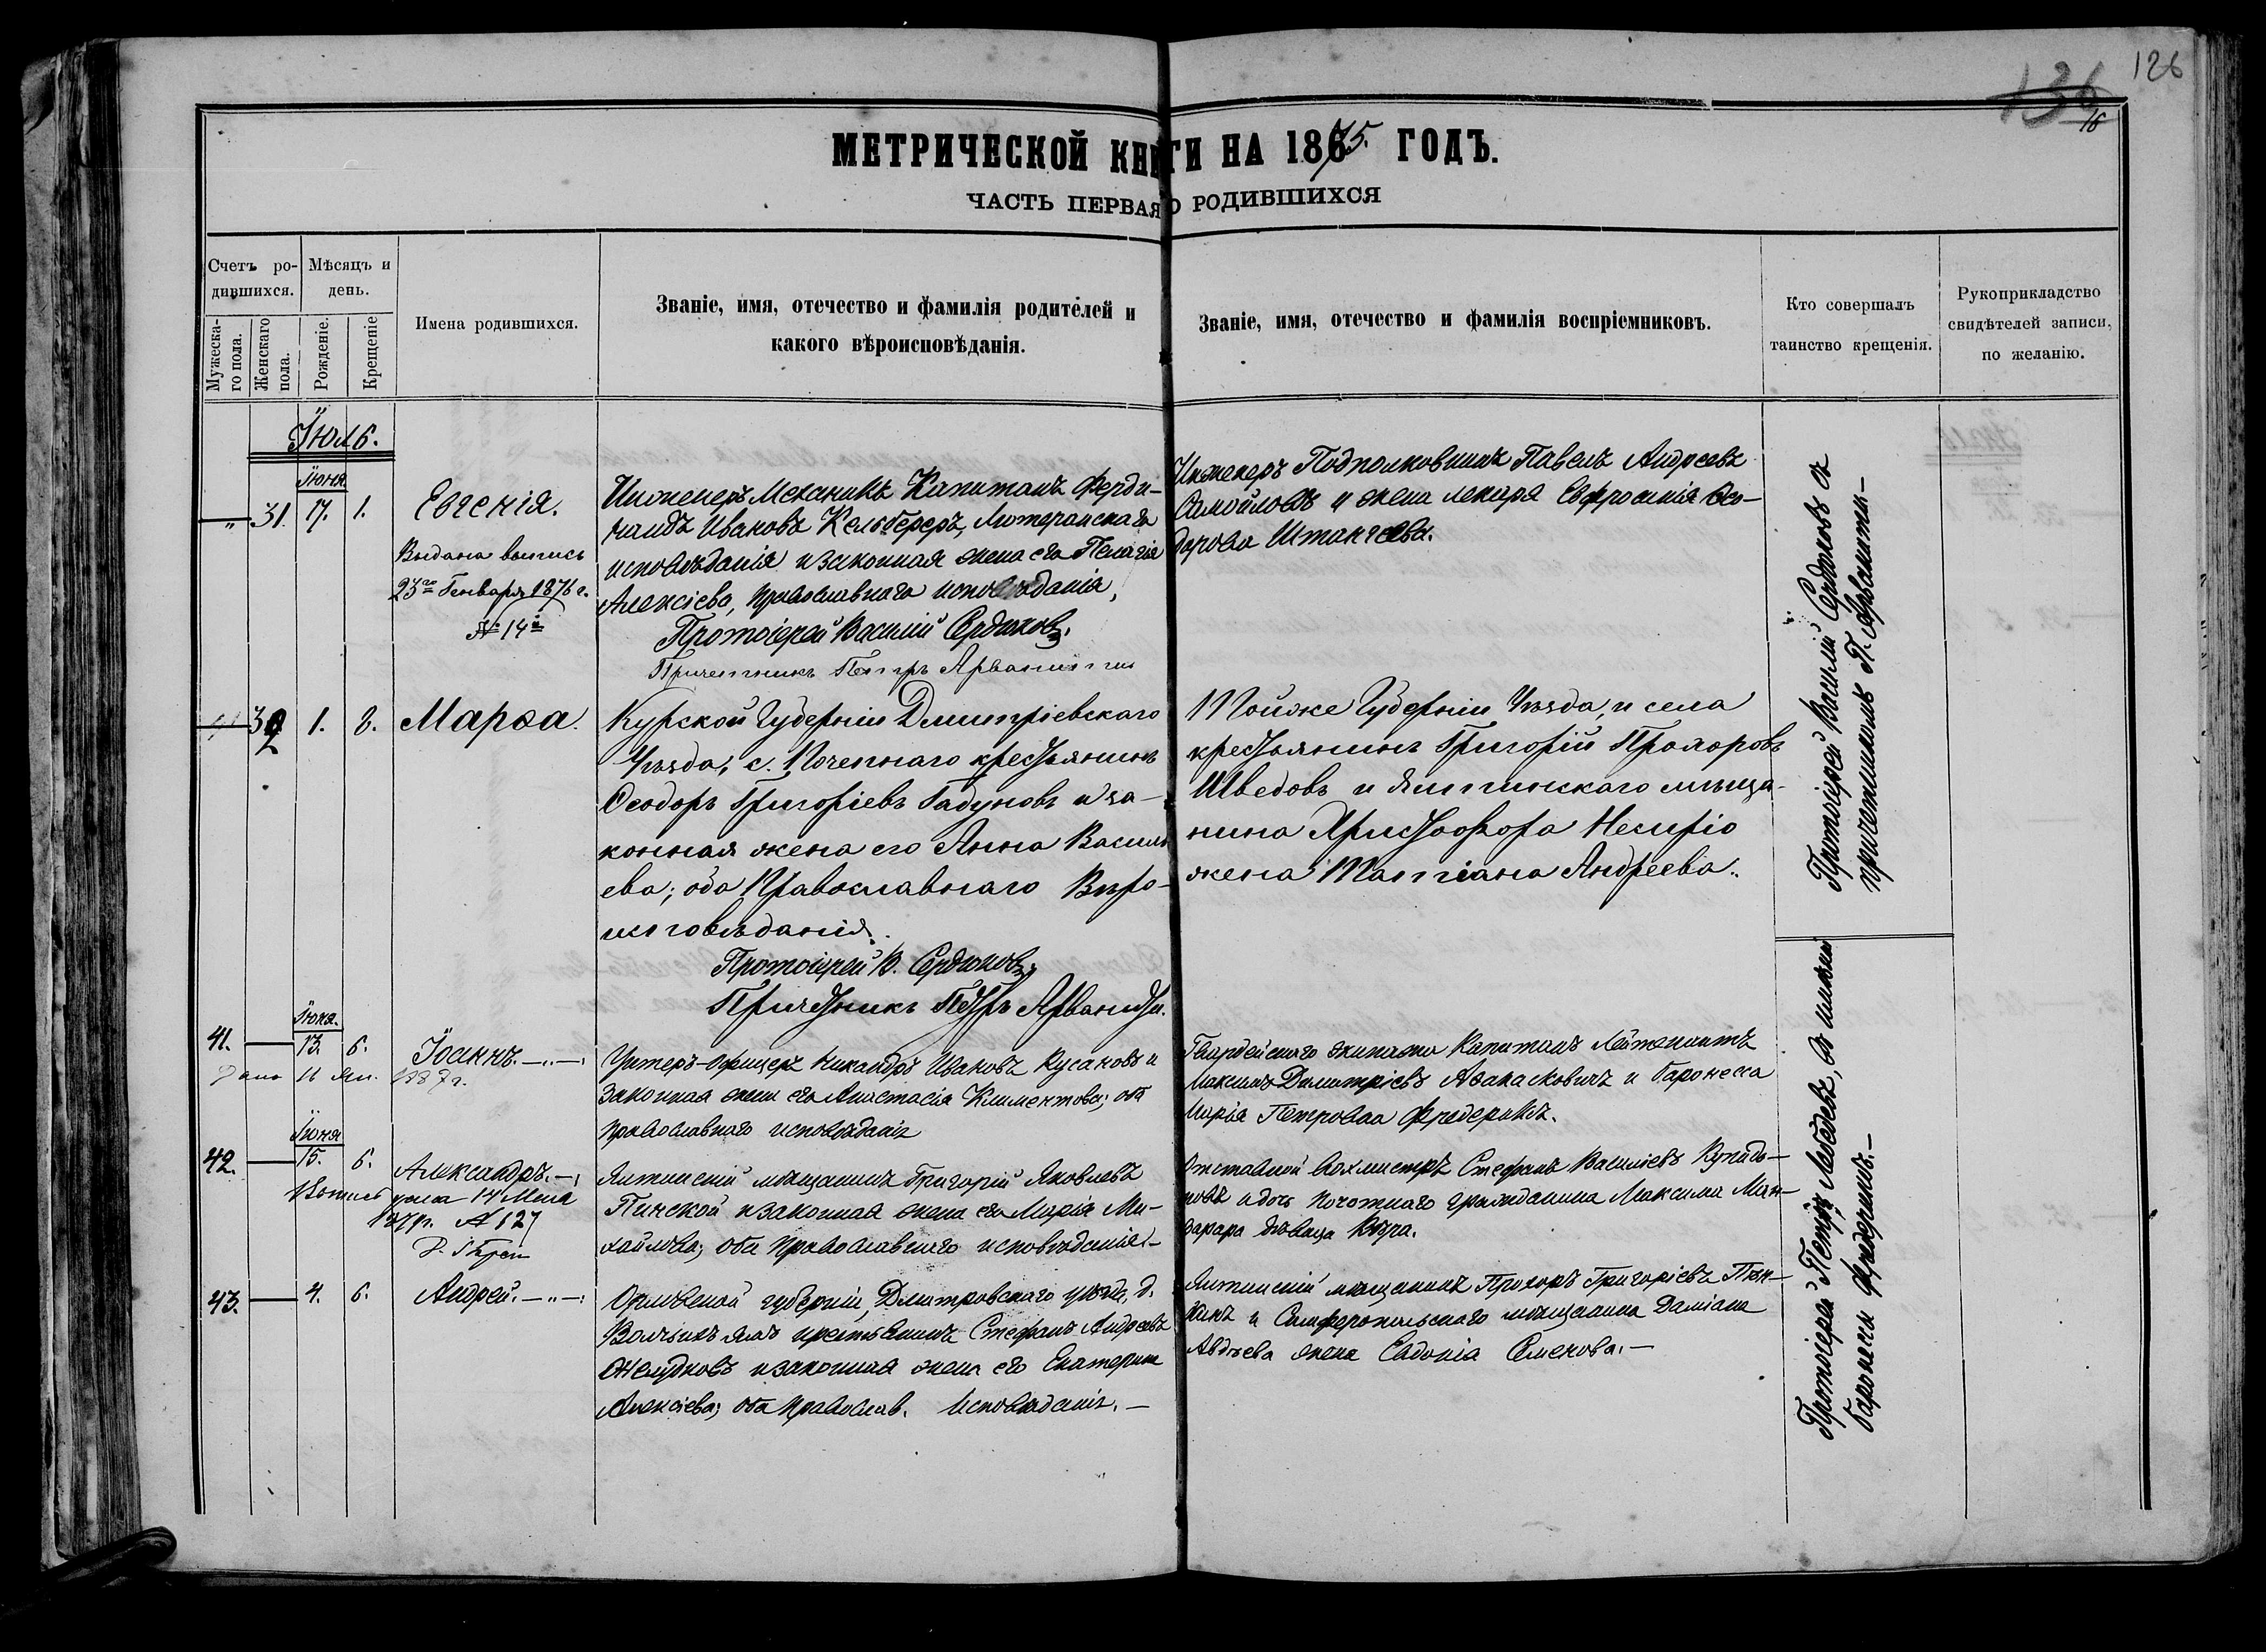 126
136
16
МЕТРИЧЕСКОЙ КНИГИ НА 1875. ГОДЪ.
ЧАСТЬ ПЕРВАЯ О РОДИВШИХСЯ
Счетъ ро-
дившихся.
Мужеска-
го пола.
Женскаго
пола.
Мѣсяцъ и
день.
Рожденіе.
Крещеніе
Имена родившихся.
Званіе, имя, отечество и фамилія родителей и
какого вѣроисповѣданія.
Званіе, имя, отечество и фамилія воспріемниковъ.
Кто совершалъ
таинство крещенія.
Рукоприкладство
свидѣтелей записи,
по желанію.
Іюль.
Іюня
31. 17. 1.
Евгенія.
Выдана выпись
23го Генваря 1876 г.
№ 14й
Инженеръ Механикъ Капитанъ Ферди-
нандъ Ивановъ Кельбереръ, Лютеранскаго
исповѣданія и законная жена его Пелагія
Алексіева, православнаго исповѣданія,
Протоіерей Василій Сердюковъ.
Причетникъ Петръ Арванити
Инженеръ Подполковникъ Павелъ Андреевъ
Самойловъ и жена лекаря Евфросинія Ѳео-
дорова Штангеева.
Протоіерей Василій Сердюковъ съ
причетникомъ П. Арванити.—
32 1. 2. Марѳа.
Курской Губерніи Дмитріевскаго
Уѣзда, с. Поченнаго крестьянинъ
Ѳеодоръ Григоріевъ Гадуновъ и за-
конная жена его Анна Василь
ева; оба Православнаго Вѣро-
исповѣданія.
Протоіерей В. Сердюковъ,
Причетникъ Петръ Арванити.
Тойже Губерніи Уѣзда, и села
крестьянинъ Григорій Прохоровъ
Шведовъ и Ялтинскаго мѣща-
нина Христофора
жена Татіана Андреева.
Іюня.
41. — 13. 6. Іоаннъ.—„—.
Дано 11 Ян. 1887 г.
Унтеръ-Офицеръ Никандръ Ивановъ Кусаковъ и
законная жена его Анастасія Климентова; оба
православнаго исповѣданія
Гвардейскаго экипажа Капитанъ Лейтенантъ
Максимъ Димитріевъ и баронесса
Марія Петровна Фредериксъ.
Іюня
42. — 15. 6. Александръ.—
14 Мая
№ 127
Ялтинскій мѣщанинъ Григорій Яковлевъ
Пинской и законная жена его Марія Ми-
хайлова; оба православнаго исповѣданія.—
Отставной вахмистръ Стефанъ Василіевъ
и дочь почотнаго гражданина Максима
дѣвица
43. — 4. 6. Андрей.—„—.
Орловской губерніи, Дмитровскаго уѣзда, д.
крестьянинъ Стефанъ Андреевъ
Желудковъ и законная жена его Екатерина
Алексіева; оба православ. исповѣданія.—
Ялтинскій мѣщанинъ Прохоръ Григоріевъ
и Симферопольскаго мѣщанина Даміана
Авдѣева жена Евдокія Семенова.—
Протоіерей Петръ Лебедевъ, въ имѣніи
баронессы Фредериксъ.—